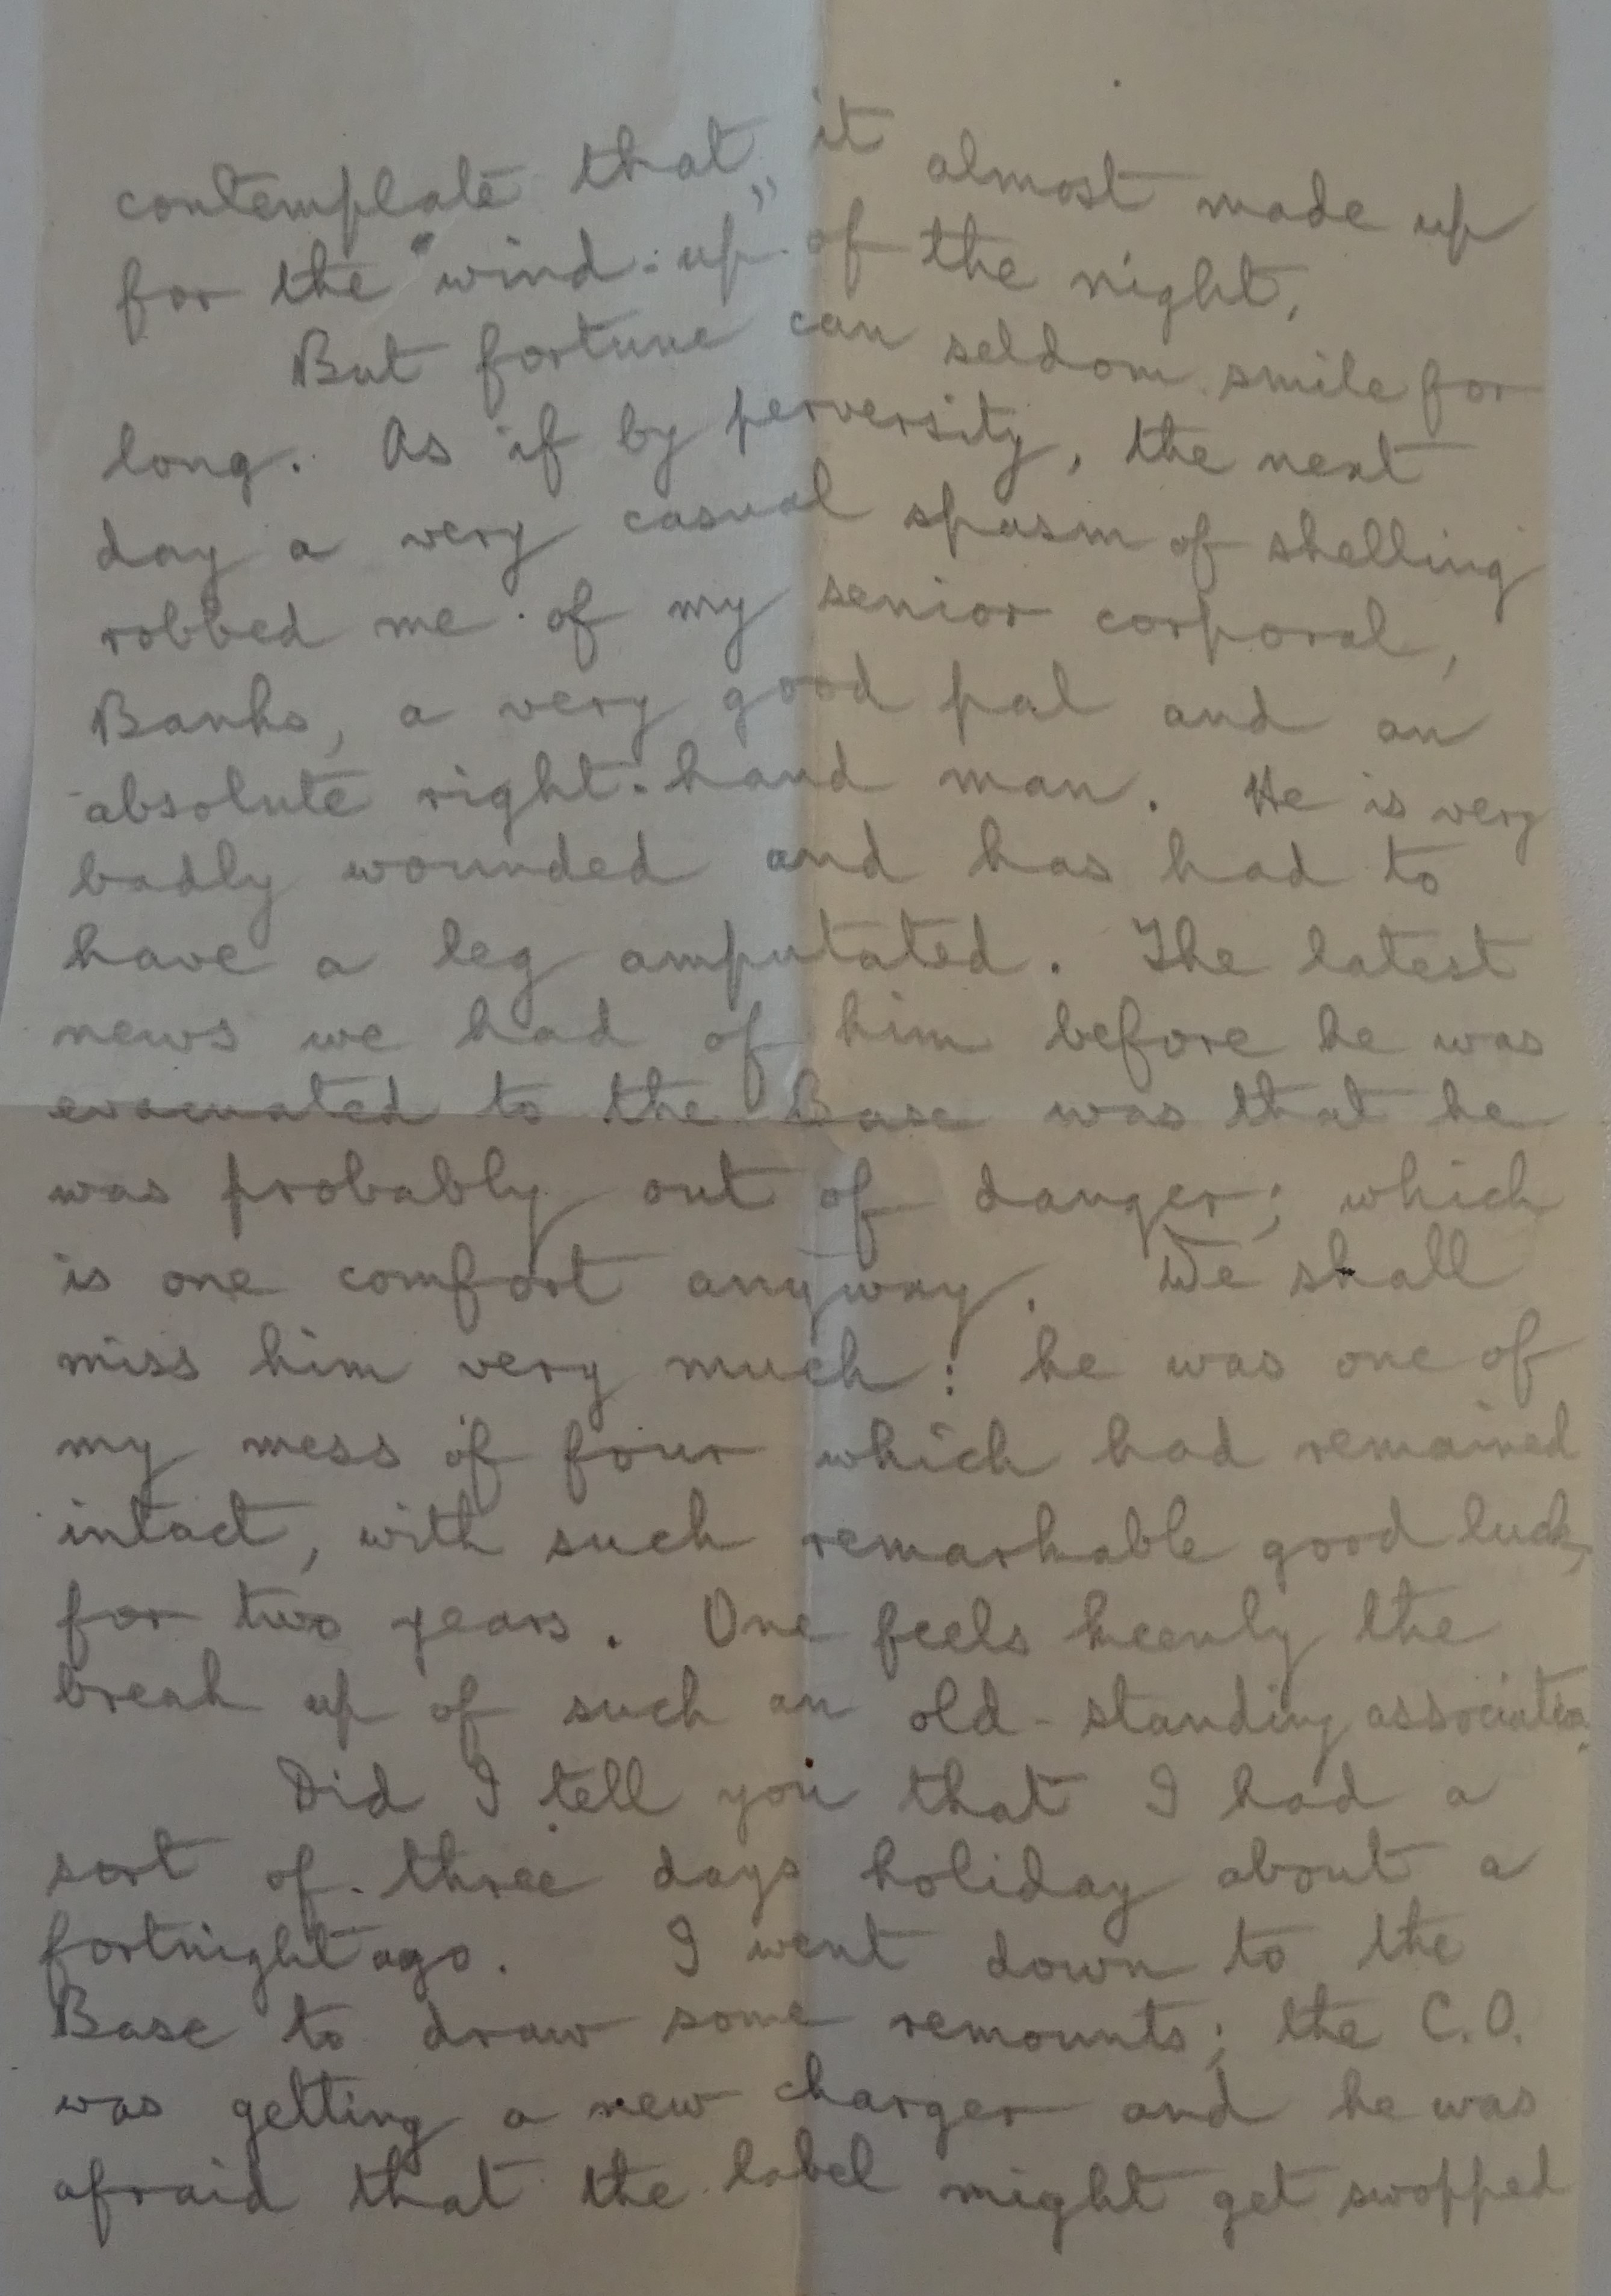 contemplate that it almost made up
for the "wind-up" of the night.
But fortune can seldom smile for
long. As if by perversity, the next
day a very casual spasm of shelling
robbed me of my senior corporal,
Banks, a very good pal and an
absolute right-hand man. He is very
badly wounded and has had to
have a leg amputated. The latest
news we had of him before he was
evacuated to the Base was that he
was probably out of danger; which
is one comfort anyway. We shall
miss him very much: he was one of
my mess of four which had remained
intact, with such remarkable good luck,
for two years. One feels keenly the
break up of such an old-standing association.
Did I tell you that I had a
sort of three days holiday about a
fortnight ago. I went down to the
Base to draw some remounts; the C.O.
was getting a new charger and he was
afraid that the label might get swopped